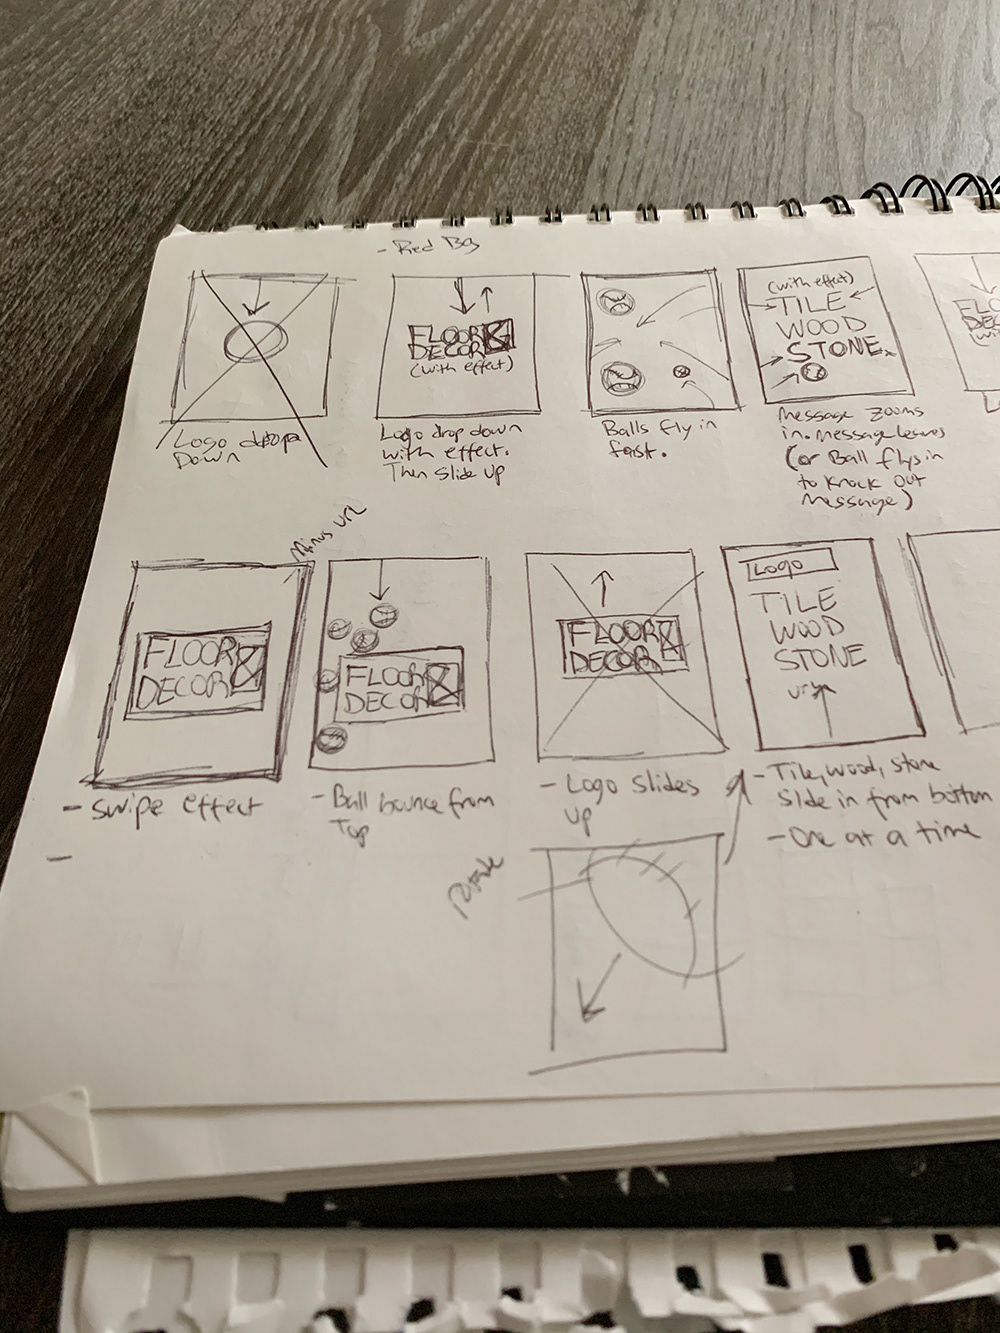 - Red BG
FLOOR
DECOR
(with effect)
(with effect)
TILE
WOOD
STONE
Logo drop
Down
Logo drop down
with effect.
Then slide up
Balls fly in
fast.
Message zooms
in. Message leaves
(or Ball flys in
to knock out
message)
minus URL
FLOOR
DECOR
FLOOR
DECOR
FLOOR
DECOR
Logo
TILE
WOOD
STONE
url
- Swipe effect
- Ball bounce from
Top
- Logo slides
up
- Tile, wood, stone
slide in from bottom
- One at a time
-